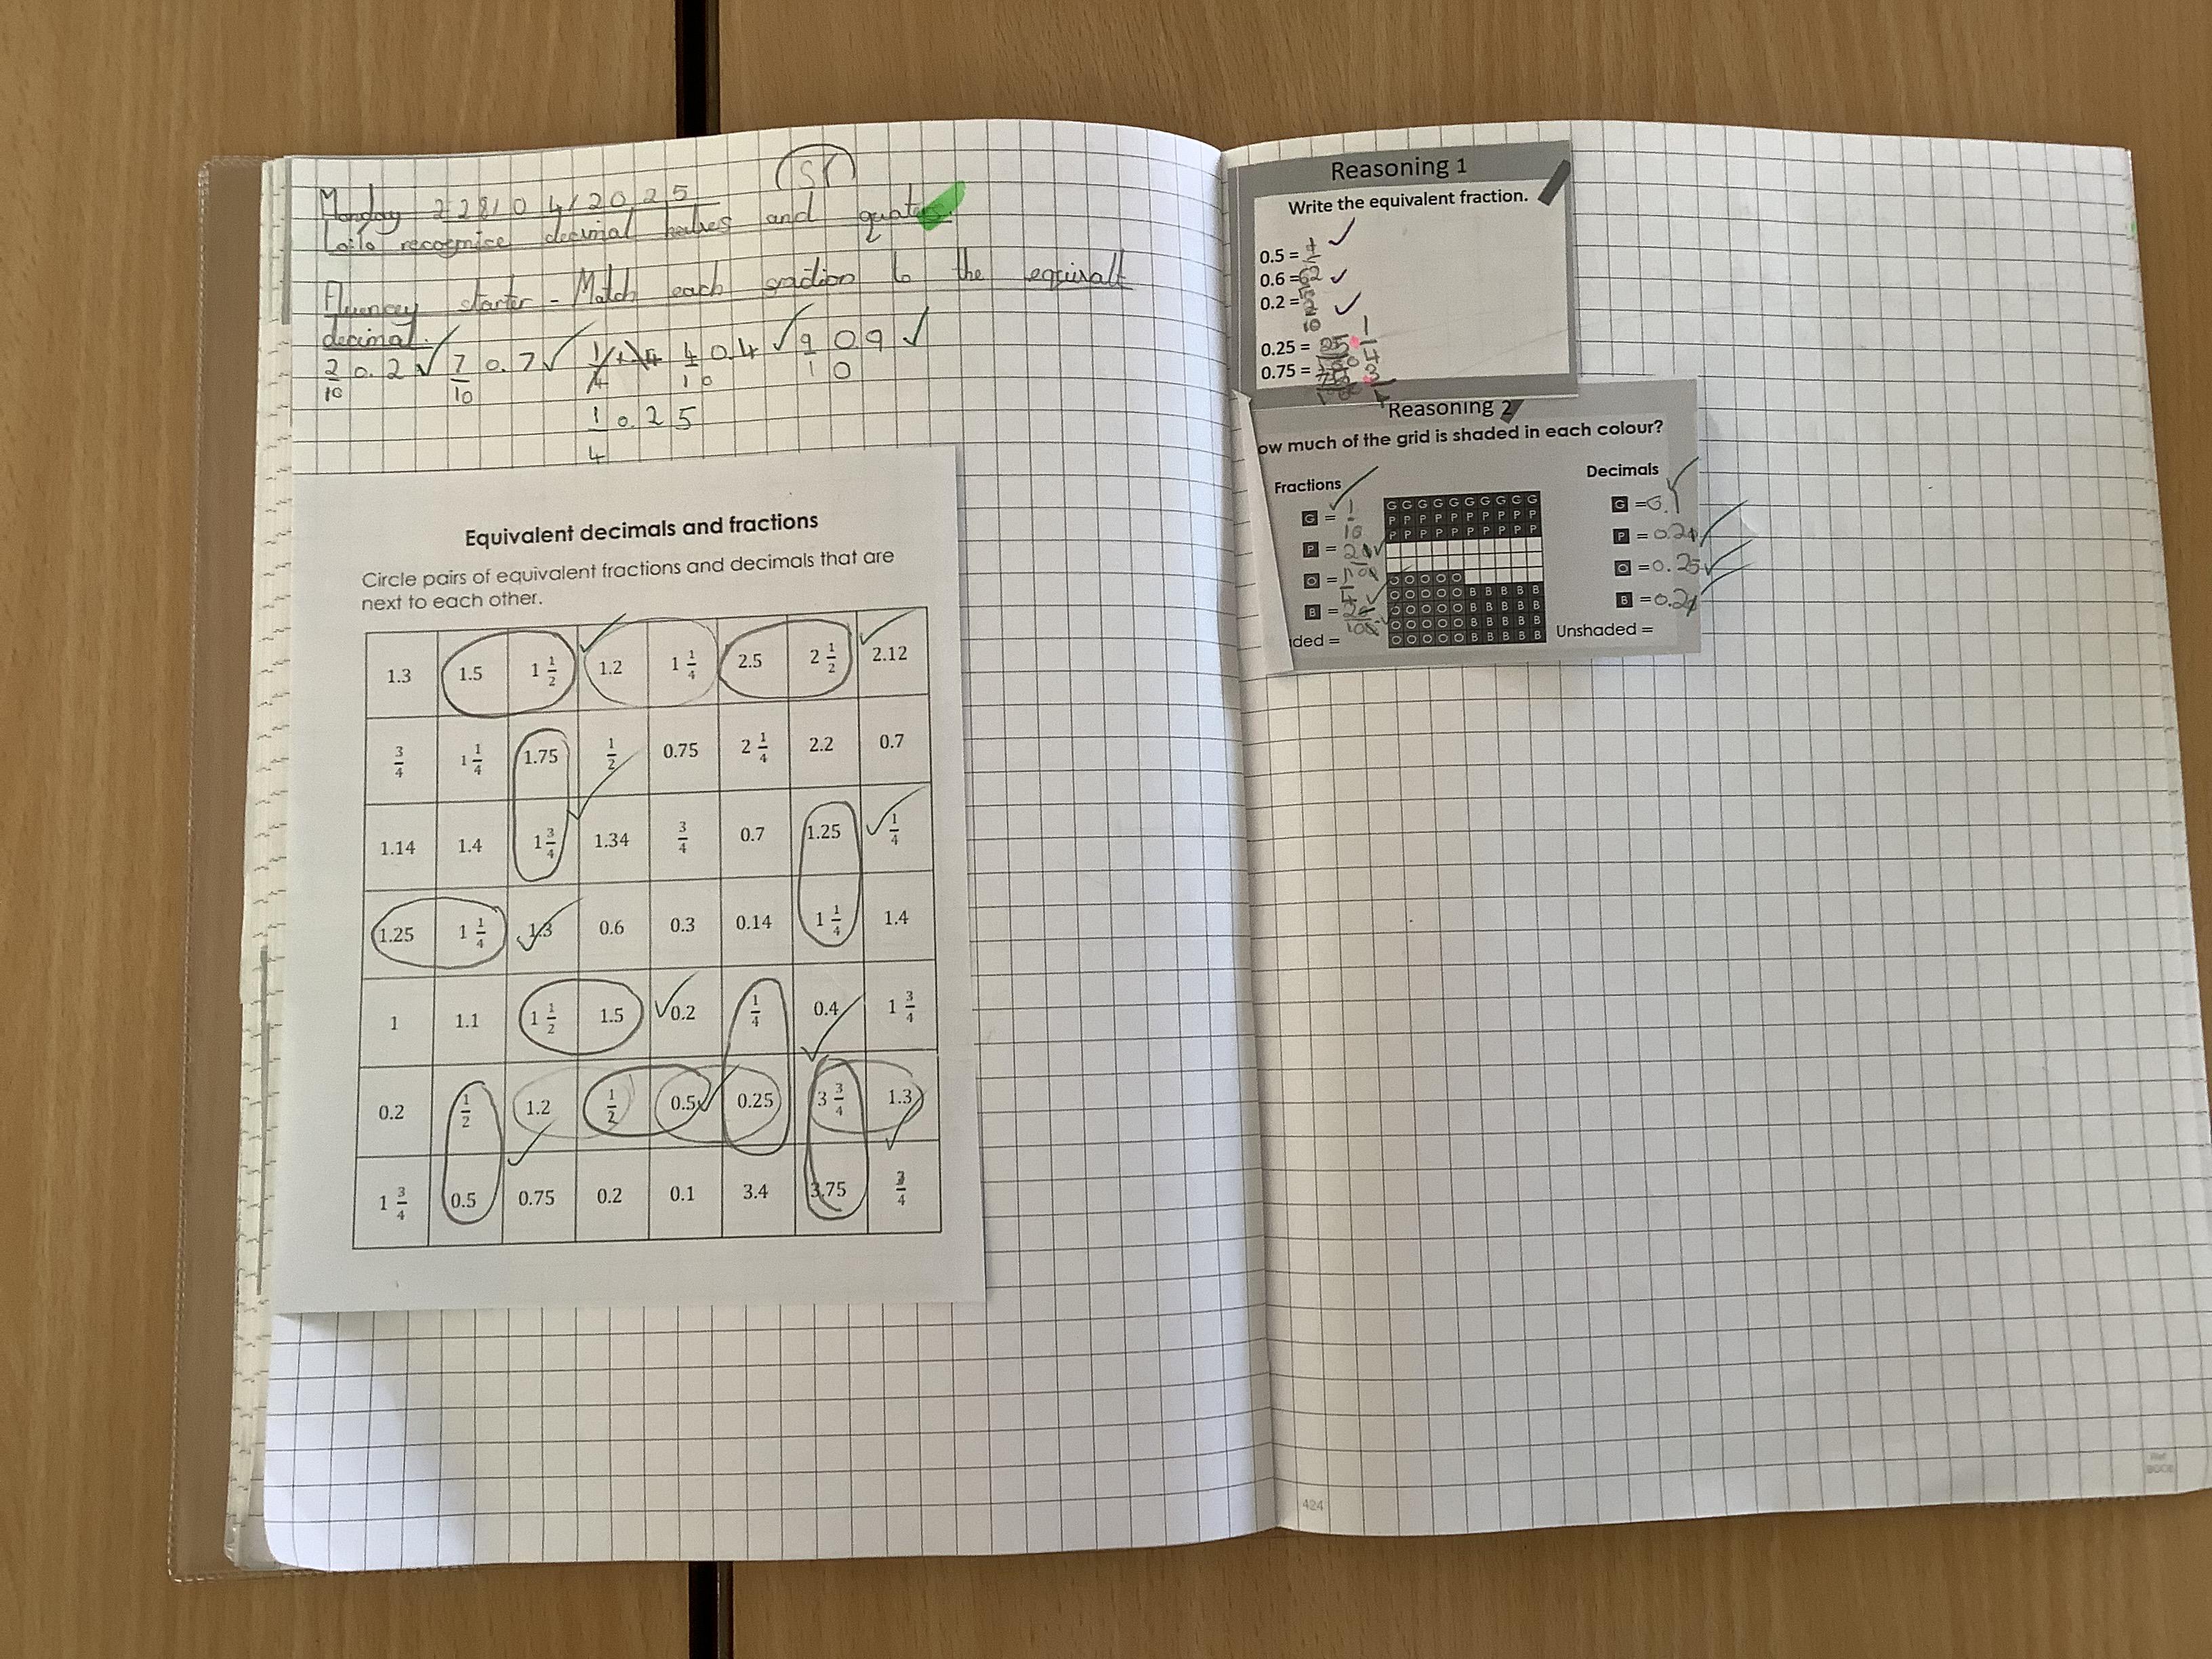 SY
Monday 28/04/2025
Lo:To recognise decimal halves and
Fluencey starter - Match each fraction to the equivalt
decimal.
2/10 0.2 7/10 0.7 4/10 0.4 9/10 0.9
1/4 0.25
Equivalent decimals and fractions
Circle pairs of equivalent fractions and decimals that are
next to each other.
1.3 1.5 1 1/2 1.2 1 1/4 2.5 2 1/2 2.12
3/4 1 1/4 1.75 1/2 0.75 2 1/4 2.2 0.7
1.14 1.4 1 3/4 1.34 3/4 0.7 1.25 1/4
1.25 1 1/4 1.3 0.6 0.3 0.14 1 1/4 1.4
1 1.1 1 1/2 1.5 0.2 1/4 0.4 1 3/4
0.2 1/2 1.2 1/2 0.5 0.25 3 3/4 1.3
1 3/4 0.5 0.75 0.2 0.1 3.4 3.75 3/4
Reasoning 1
Write the equivalent fraction.
0.5 =
0.6 =
0.2 =
0.25 = 1/4
0.75 = 3/4
Reasoning 2
ow much of the grid is shaded in each colour?
Fractions
G = 1/10
P =
O = 1/4
B =
ded =
G G G G G G G G G G
P P P P P P P P P P
P P P P P P P P P P
O O O O O
O O O O O B B B B B
O O O O O B B B B B
O O O O O B B B B B
O O O O O B B B B B
Decimals
G = 0.1
P = 0.2
O = 0.25
B = 0.2
Unshaded =
424